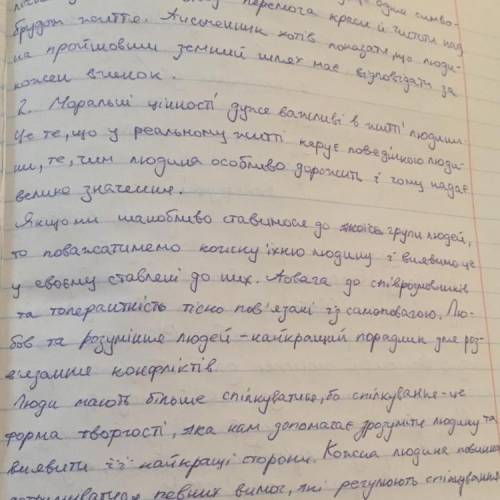 перемога краси й чистоти над
брудом життя. Письменник хотів показати, що люди-
на пройшовши земний шлях має відповідати за
кожен вчинок.
2. Моральні цінності дуже важливі в житті людини.
Це те, що у реальному житті керує поведінкою люди-
ни, те, чим людина особливо дорожить і чому надає
велике значення.
Якщо ми шанобливо ставимося до якоїсь групи людей,
то поважатимемо кожну їхню людину і виявимо це
у своєму ставлені до них. Повага до співрозмовників
та толерантність тісно пов'язані із самоповагою. Лю-
бов та розуміння людей - найкращий порадник для роз-
в'язання конфліктів.
Люди мають більше спілкуватися, бо спілкування - це
форма творгості, яка нам допомагає зрозуміти людину та
виявити її найкращі сторони. Кожна людина повинна
дотримуватися певних вимог, які регулюють спілкування